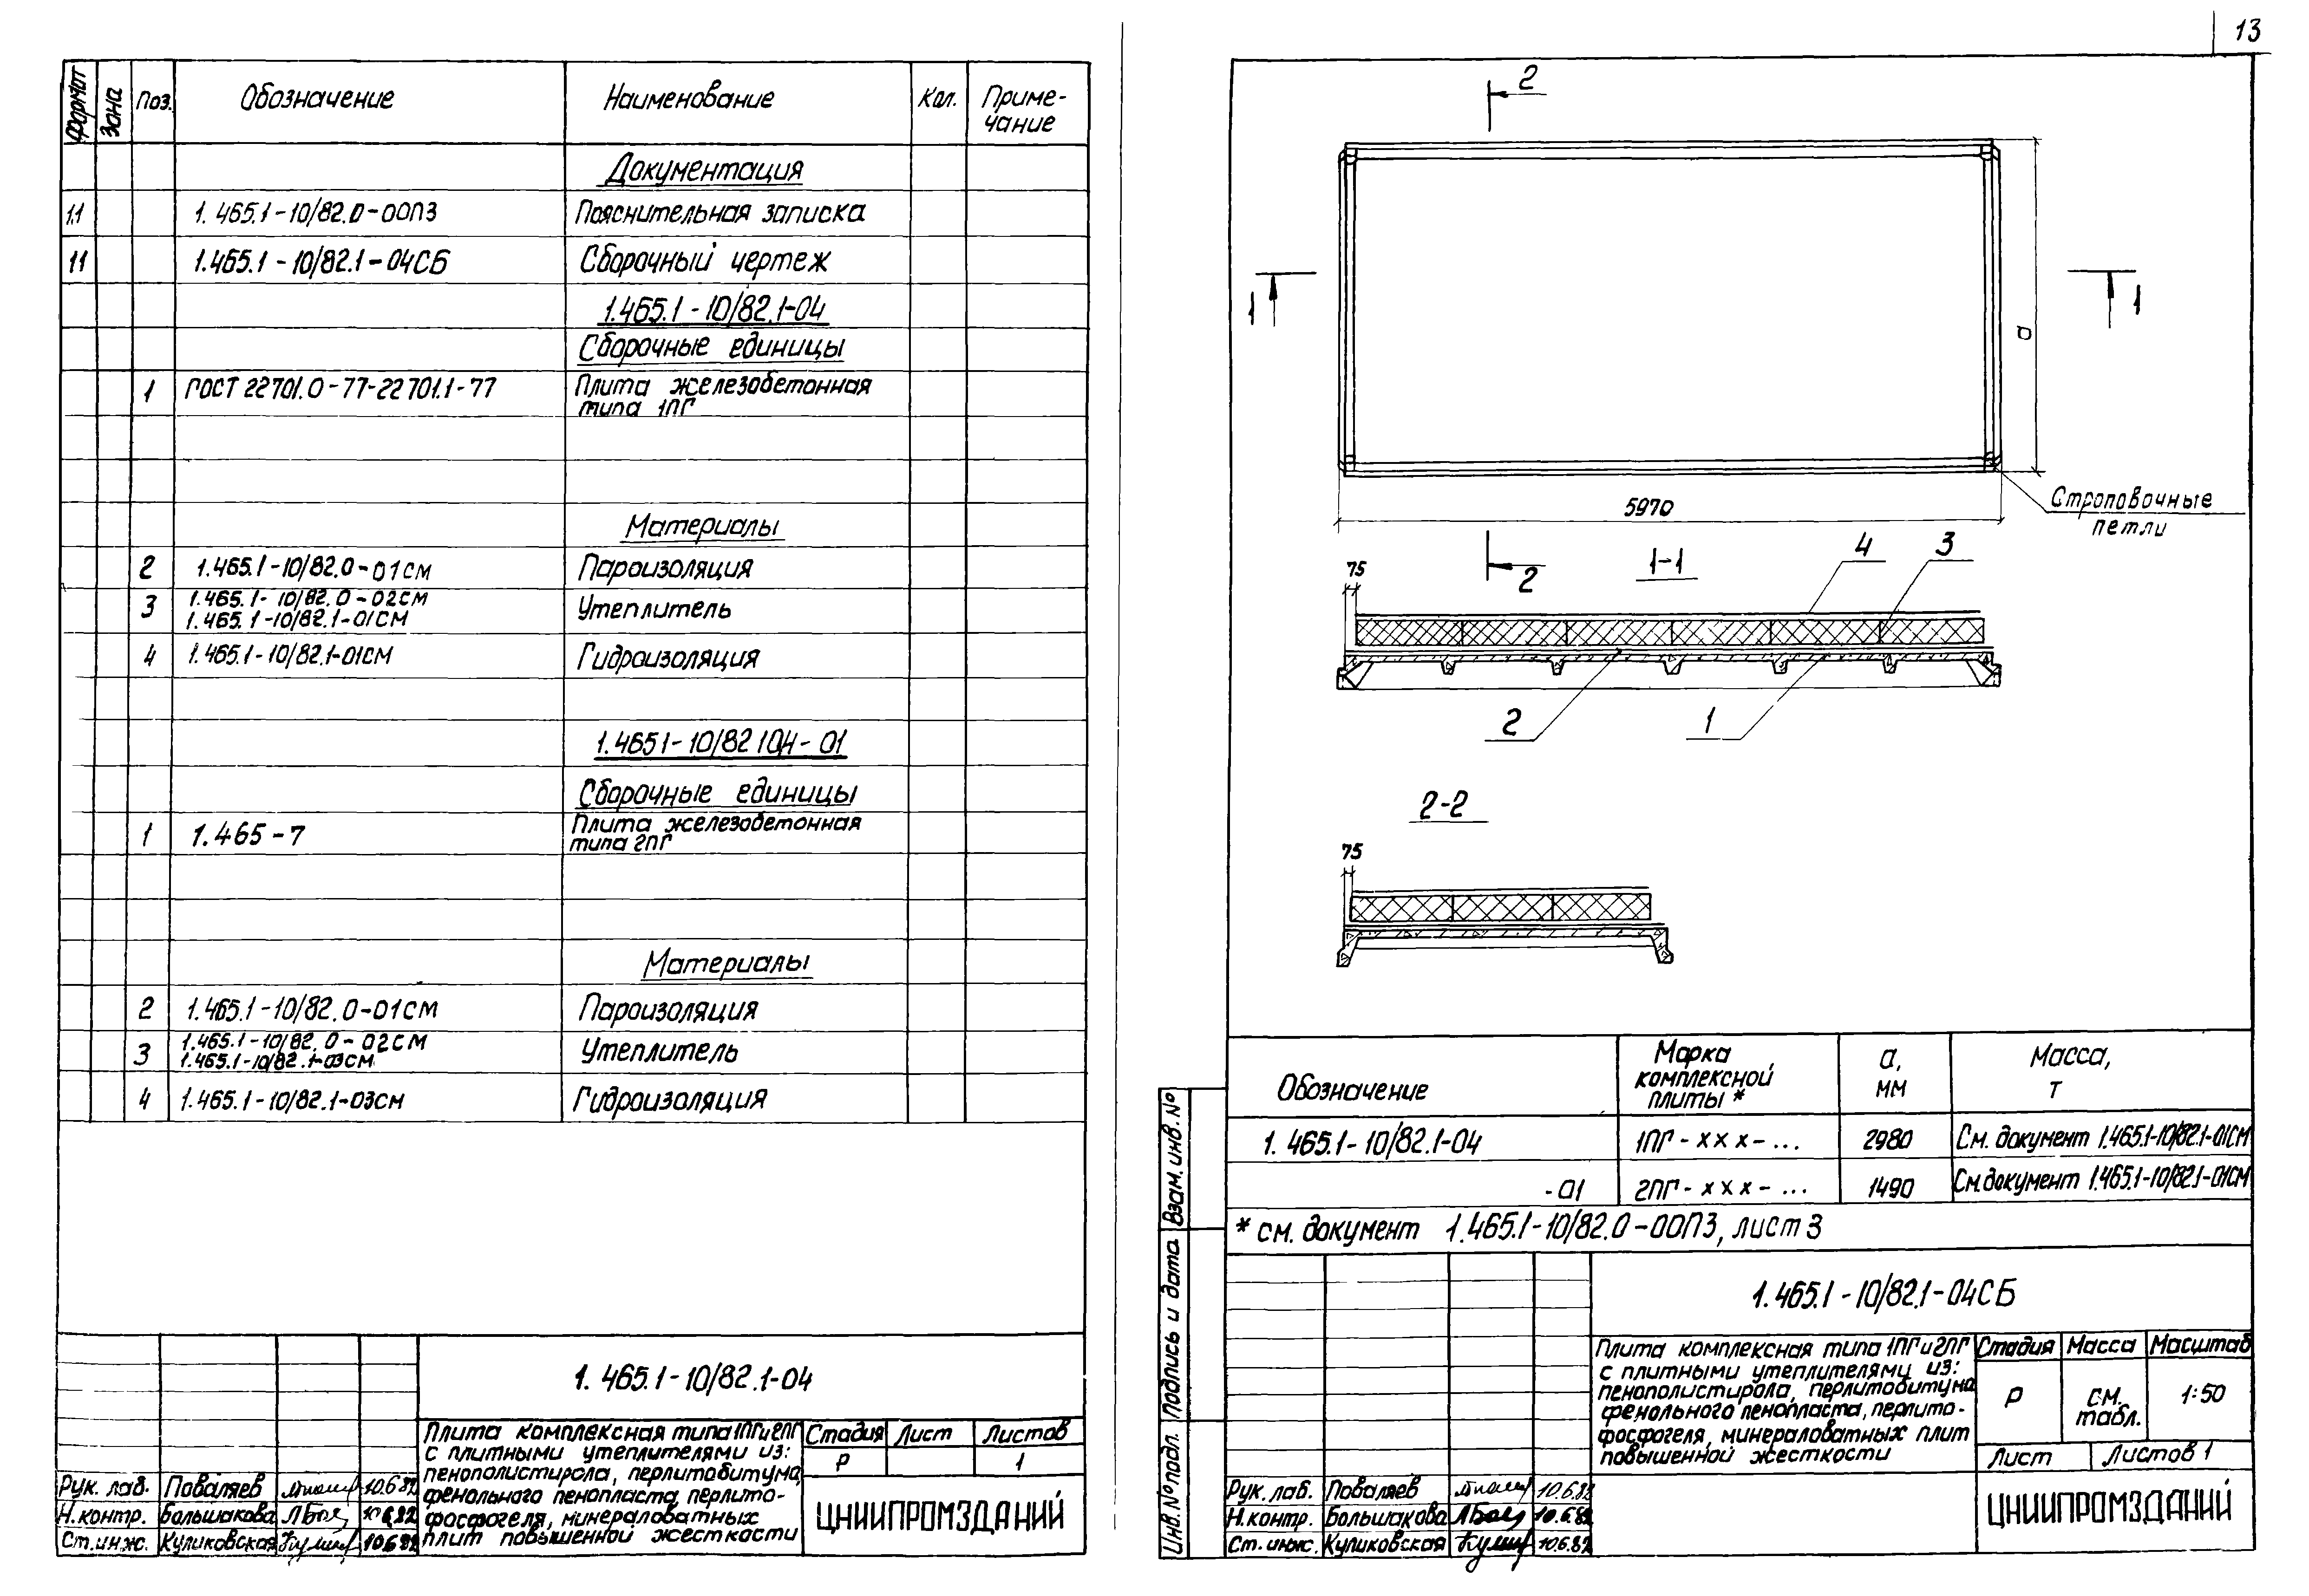 13
формат
зона
Поз.
Обозначение
Наименование
Кол.
Приме-
чание
Документация
11
1.465.1-10/82.0-00ПЗ
Пояснительная записка
11
1.465.1-10/82.1-04СБ
Сборочный чертеж
1.465.1-10/82.1-04
Сборочные единицы
1
ГОСТ 22701.0-77-22701.1-77
Плита железобетонная
типа 1ПГ
Материалы
2
1.465.1-10/82.0-01СМ
Пароизоляция
3
1.465.1-10/82.0-02СМ
1.465.1-10/82.1-01СМ
Утеплитель
4
1.465.1-10/82.1-01СМ
Гидроизоляция
1.4651-10/82 104-01
Сборочные единицы
1
1.465-7
Плита железобетонная
типа 2ПГ
Материалы
2
1.465.1-10/82.0-01СМ
Пароизоляция
3
1.465.1-10/82.0-02СМ
1.465.1-10/82.1-03СМ
Утеплитель
4
1.465.1-10/82.1-03СМ
Гидроизоляция
1.465.1-10/82.1-04
Плита комплексная типа 1ПГ и 2ПГ
с плитными утеплителями из:
пенополистирола, перлитобитума,
фенольного пенопласта, перлито-
фосфогеля, минераловатных
плит повышенной жесткости
Стадия
Лист
Листов
Р
1
ЦНИИПРОМЗДАНИЙ
Рук. лаб. Поваляев 10.6.82
Н.контр. Большакова 10.6.82
Ст.инж. Куликовская 10.6.82
2
1
1
а
5970
Строповочные
петли
2
1-1
75
4
3
2
1
2-2
75
Обозначение
Марка
комплексной
плиты *
а,
мм
Масса,
т
1.465.1-10/82.1-04
1ПГ-ххх-...
2980
См. документ 1.465.1-10/82.1-01СМ
-01
2ПГ-ххх-...
1490
См. документ 1.465.1-10/82.1-01СМ
* см. документ 1.465.1-10/82.0-00ПЗ, лист 3
Взам. инв. №
Подпись и дата
Инв. № подл.
1.465.1-10/82.1-04СБ
Плита комплексная типа 1ПГ и 2ПГ
с плитными утеплителями из:
пенополистирола, перлитобитума
фенольного пенопласта, перлито-
фосфогеля, минераловатных плит
повышенной жесткости
Стадия
Масса
Масштаб
Р
см.
табл.
1:50
Лист
Листов 1
ЦНИИПРОМЗДАНИЙ
Рук. лаб. Поваляев 10.6.82
Н.контр. Большакова 10.6.82
Ст. инж. Куликовская 10.6.82